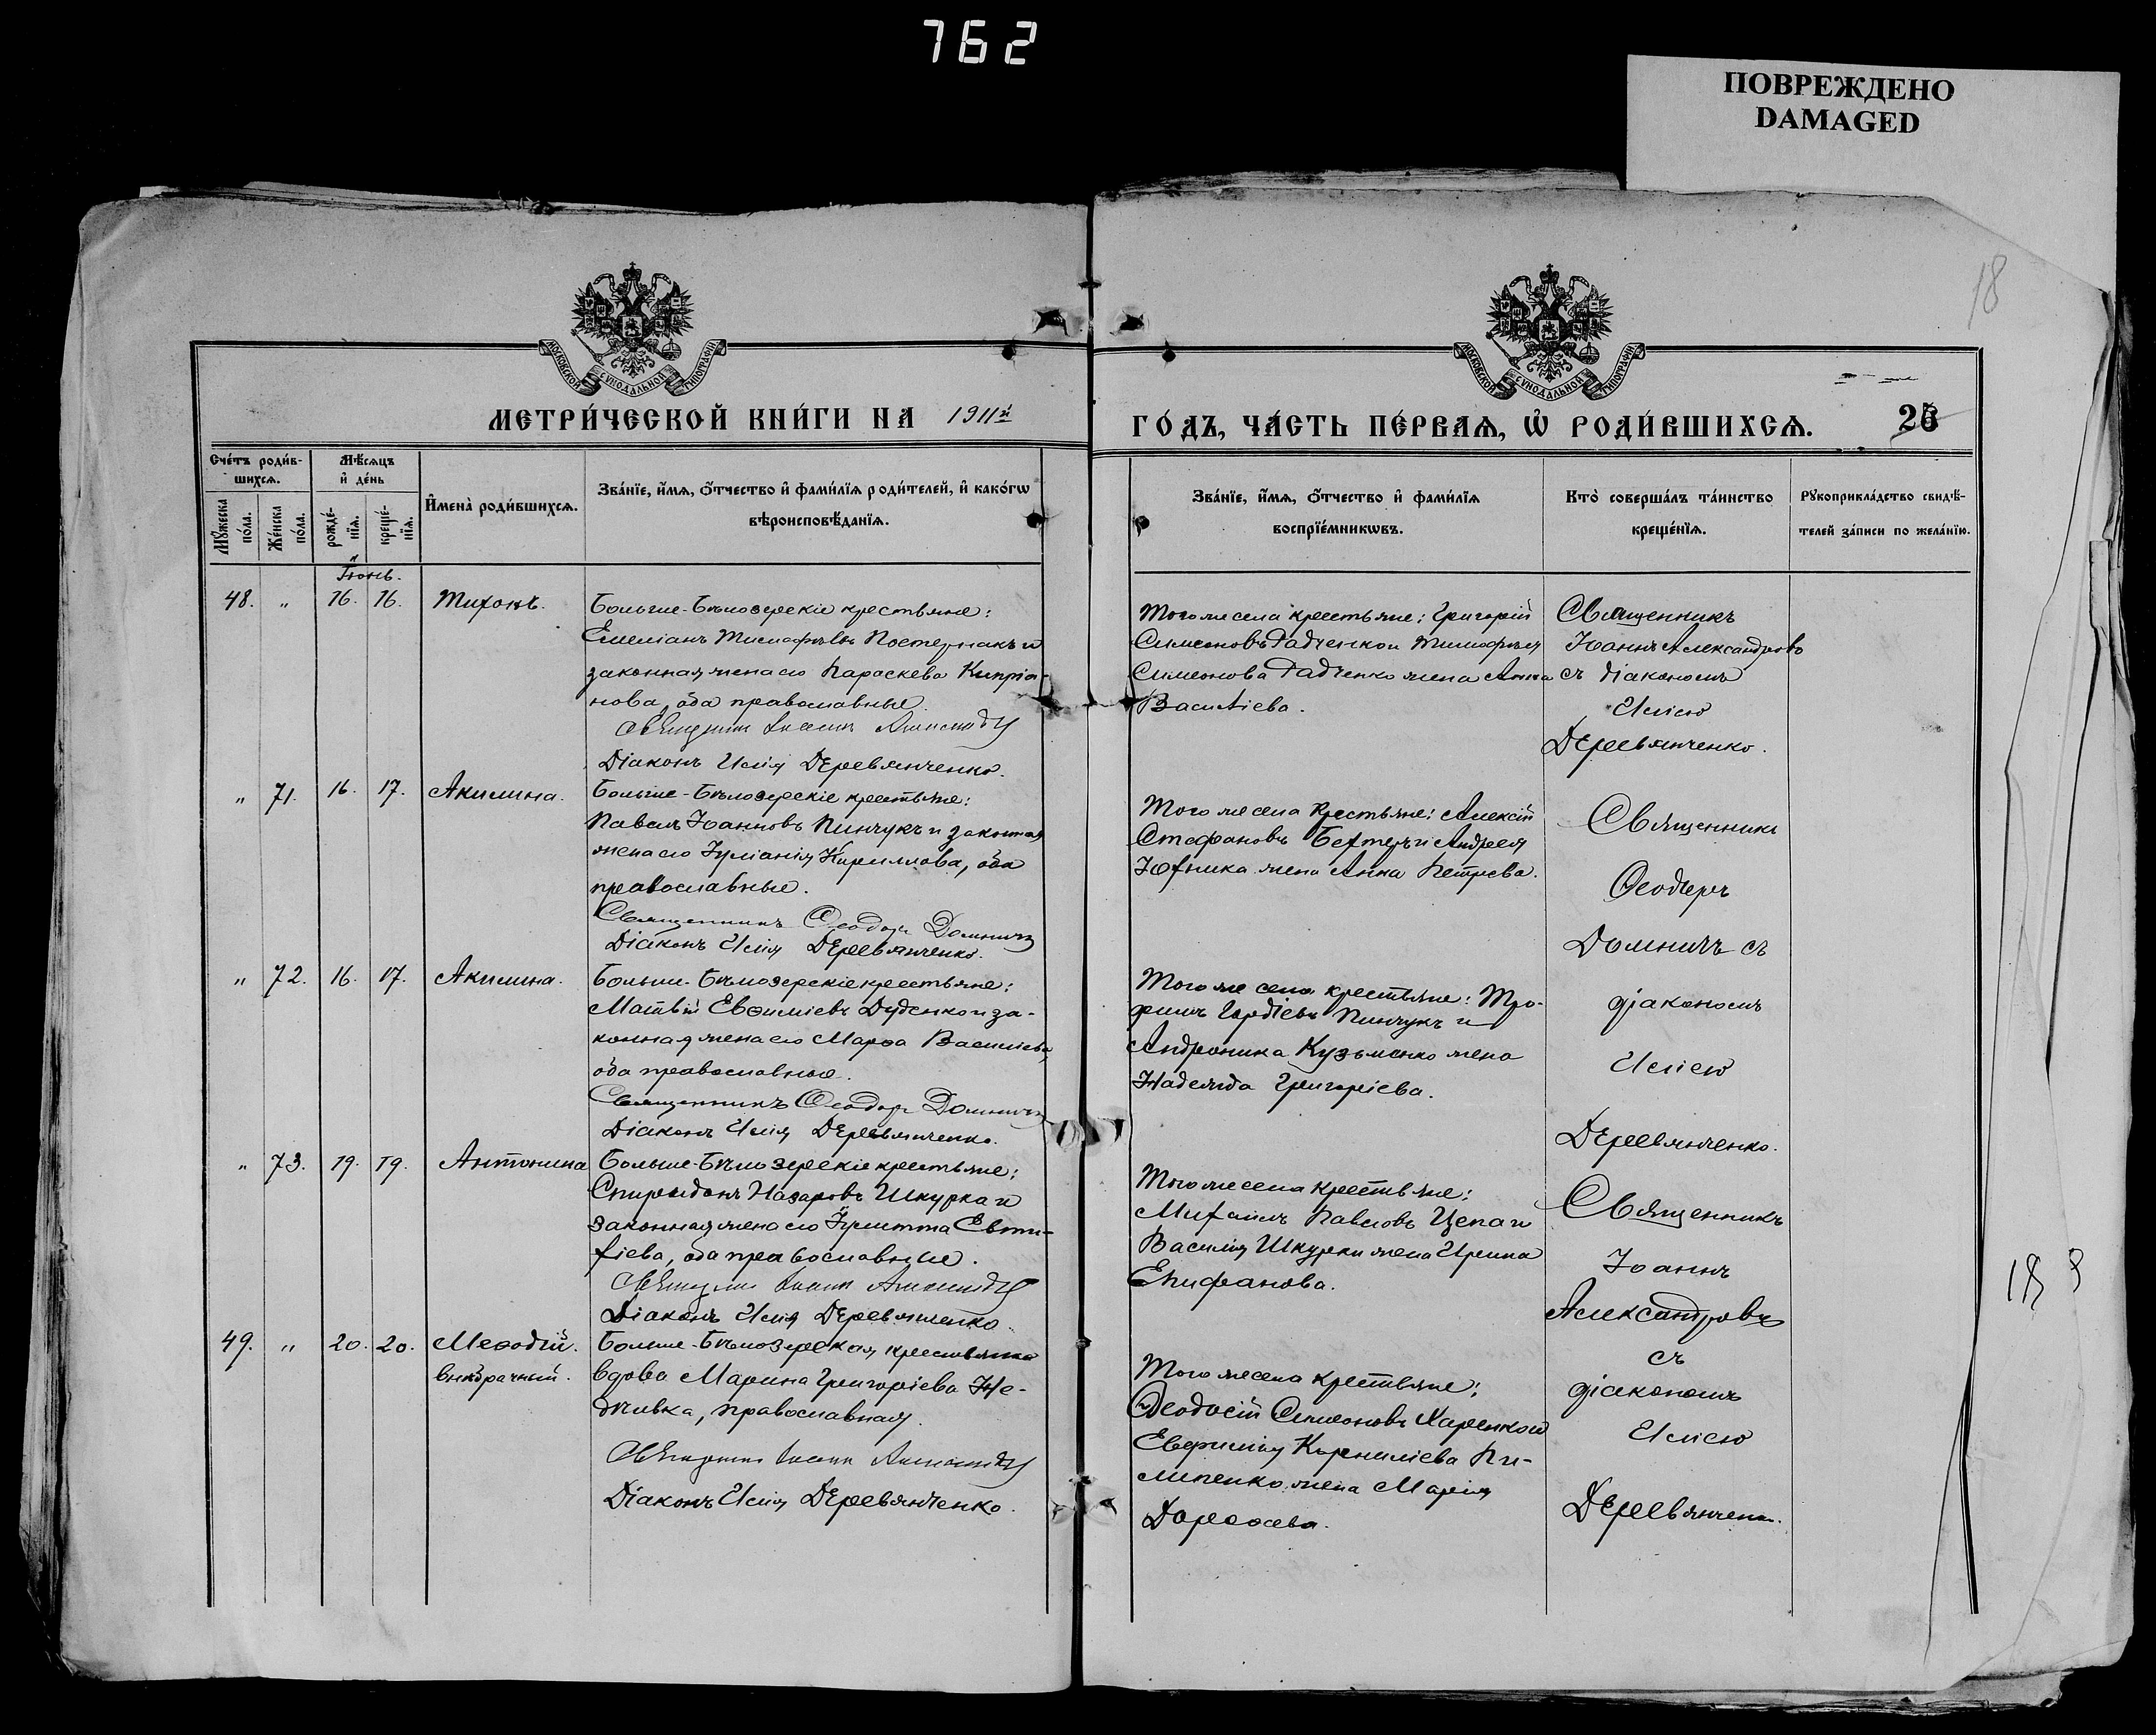 762
ПОВРЕЖДЕНО
DAMAGED
18
МОСКОВСКОЙ СѴНОДАЛЬНОЙ ТИПОГРАФІИ
МОСКОВСКОЙ СѴНОДАЛЬНОЙ ТИПОГРАФІИ
МЕТРИ́ЧЕСКОЙ КНИ́ГИ НА 1911й
ГО́ДЪ, ЧА́СТЬ ПЕ́РВАѦ, Ѡ҆ РОДИ́ВШИХСѦ.
Сче́тъ роди́в-
шихсѧ.
Мꙋ́жеска
по́ла.
Же́нска
по́ла.
Мѣ́сѧцъ
и҆ де́нь
рожде́-
нїѧ.
креще́-
нїѧ.
И҆мена̀ роди́вшихсѧ.
Зва́нїе, и҆́мѧ, ѻ҆́тчество и҆ фами́лїѧ роди́телей, и҆ како́гѡ
вѣроисповѣ́данїѧ.
Зва́нїе, и҆́мѧ, ѻ҆́тчество и҆ фами́лїѧ
воспрїе́мникѡвъ.
Кто̀ соверша́лъ та́инство
креще́нїѧ.
Рꙋкоприкла́дство свидѣ́-
телей за́писи по жела́нїю.
Іюнь.
48. „ 16. 16. Тихонъ.
Больше-Бѣлозерскіе крестьяне:
Емеліанъ Тимофѣевъ Постернакъ и
законная жена его Параскева Кипріа-
нова, оба православные.
Священникъ Іоаннъ Александровъ
Діаконъ Илія Деревянченко.
Того же села крестьяне: Григорій
Симеоновъ Радченко и Тимофея
Симеонова Радченко жена Анна
Василіева.
Священникъ
Іоаннъ Александровъ
съ діакономъ
Иліею
Деревянченко.
„ 71. 16. 17. Акилина.
Больше-Бѣлозерскіе крестьяне:
Павелъ Іоанновъ Пинчукъ и законная
жена его Іуліанія Кириллова, оба
православные.
Священникъ Ѳеодоръ Домничъ
Діаконъ Илія Деревянченко.
Того же села крестьяне: Алексій
Стефановъ Бехтеръ и Андрея
Юхника жена Анна Петрова.
Священникъ
Ѳеодоръ
Домничъ съ
діакономъ
Иліею
Деревянченко.
„ 72. 16. 17. Акилина.
Больше-Бѣлозерскіе крестьяне:
Матвій Евѳиміевъ Дуденко и за-
конная жена его Марѳа Василіева,
оба православные.
Священникъ Ѳеодоръ Домничъ
Діаконъ Илія Деревянченко.
Того же села крестьяне: Тро-
фимъ Гордіевъ Пинчукъ и
Андроника Кузьменко жена
Надежда Григоріева.
„ 73. 19. 19. Антонина
Больше-Бѣлозерскіе крестьяне:
Спиридонъ Назаровъ Шкурка и
законная жена его Іулитта Евти-
хіева, оба православные.
Священникъ Іоаннъ Александровъ
Діаконъ Илія Деревянченко.
Того же села крестьяне:
Михаилъ Павловъ Цепа и
Василія Шкурки жена Ирина
Епифанова.
Священникъ
Іоаннъ
Александровъ
съ
діакономъ
Иліею
Деревянченко.
49. „ 20. 20. Меѳодій.
внѣбрачный.
Больше-Бѣлозерская крестьянка
вдова Марина Григоріева Не-
дѣлька, православная.
Священникъ Іоаннъ Александровъ
Діаконъ Илія Деревянченко.
Того же села крестьяне:
Ѳеодосій Симеоновъ Харенко и
Евфимія Корниліева Пи-
липенко жена Марія
Дороѳеева.